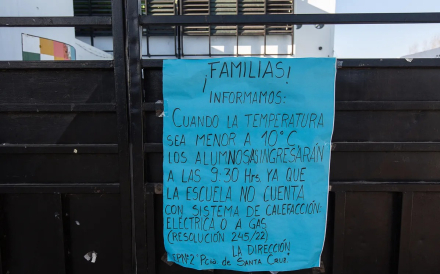 ¡FAMILIAS!
INFORMAMOS:
CUANDO LA TEMPERATURA
SEA MENOR A 10°C
LOS ALUMNOS/AS INGRESARÁN
A LAS 9:30 Hrs YA QUE
LA ESCUELA NO CUENTA
CON SISTEMA DE CALEFACCIÓN
ELÉCTRICA O A GAS
(RESOLUCIÓN 245/22)
LA DIRECCIÓN
EPNº2 "Pcia de SANTA CRUZ"